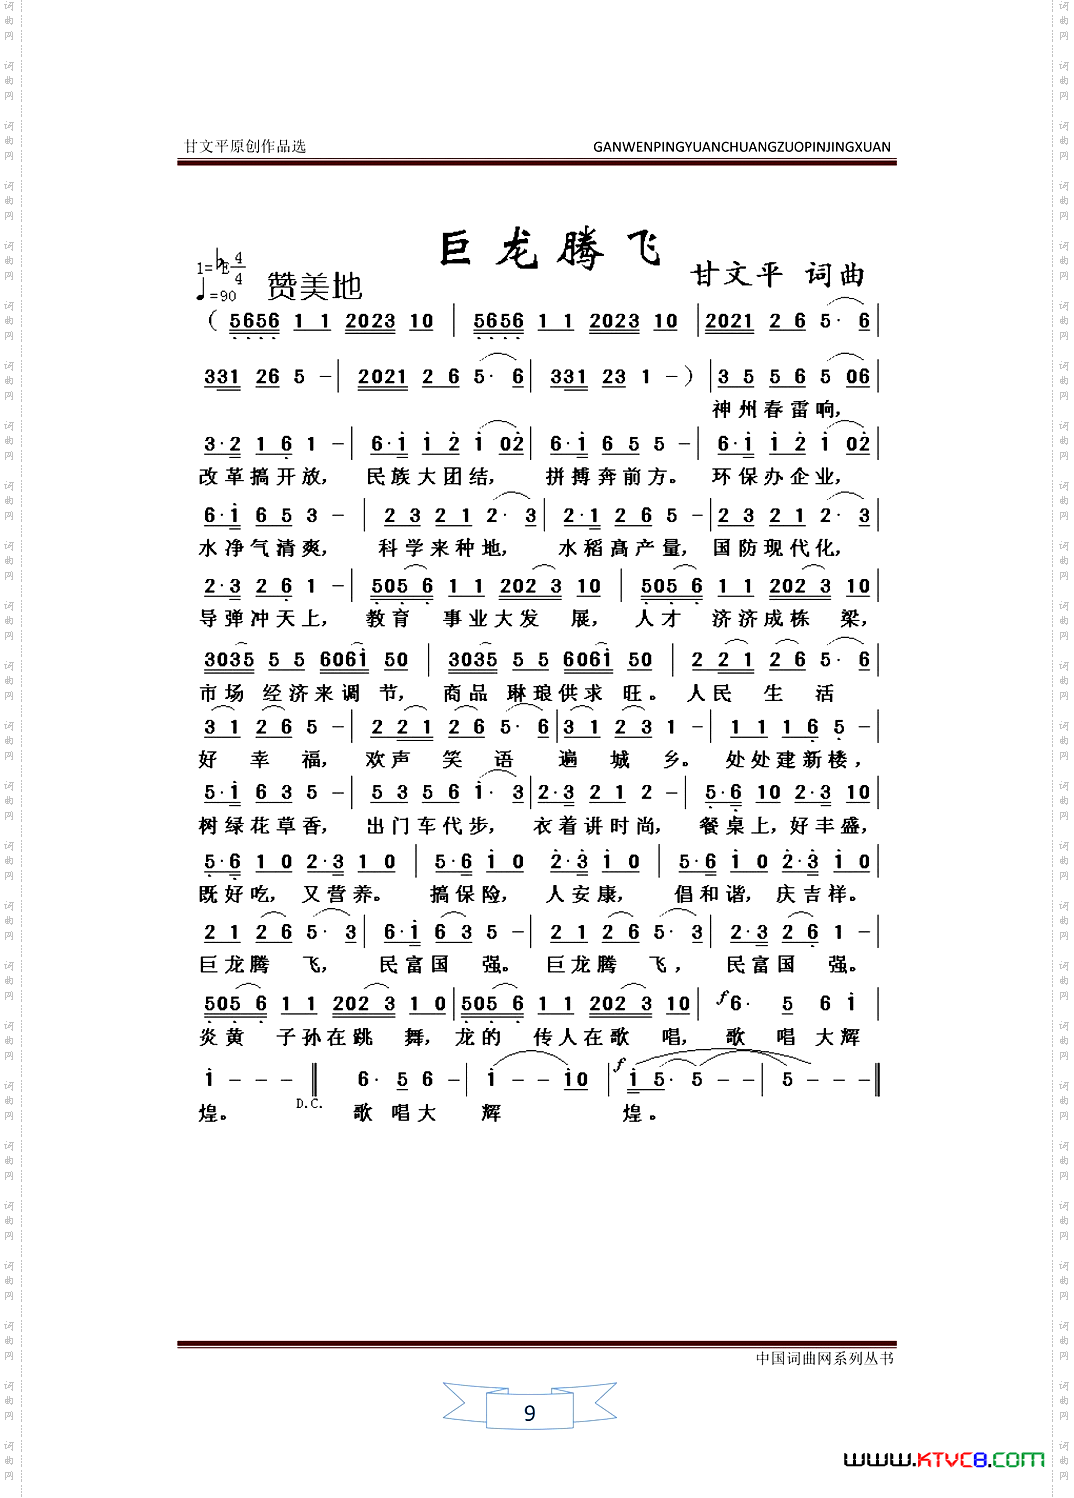 甘文平原创作品选 GANWENPINGYUANCHUANGZUOPINJINGXUAN
巨龙腾飞
1=♭E 4/4
♩=90 赞美地 甘文平 词曲
( 5656 1 1 2023 10 | 5656 1 1 2023 10 | 2021 2 6 5· 6 |
331 26 5 - | 2021 2 6 5· 6 | 331 23 1 - ) | 3 5 5 6 5 06 |
神州春雷响,
3·2 1 6 1 - | 6·i i 2 i 02 | 6·i 6 5 5 - | 6·i i 2 i 02 |
改革搞开放, 民族大团结, 拼搏奔前方。 环保办企业,
6·i 6 5 3 - | 2 3 2 1 2· 3 | 2·1 2 6 5 - | 2 3 2 1 2· 3 |
水净气清爽, 科学来种地, 水稻高产量, 国防现代化,
2·3 2 6 1 - | 505 6 1 1 202 3 10 | 505 6 1 1 202 3 10 |
导弹冲天上, 教育 事业大发 展, 人才 济济成栋 梁,
3035 5 5 606i 50 | 3035 5 5 606i 50 | 2 2 1 2 6 5· 6 |
市场 经济来调 节, 商品 琳琅供求 旺。 人民 生 活
3 1 2 6 5 - | 2 2 1 2 6 5· 6 | 3 1 2 3 1 - | 1 1 1 6 5 - |
好 幸 福, 欢声 笑 语 遍 城 乡。 处处建新楼,
5·i 6 3 5 - | 5 3 5 6 i· 3 | 2·3 2 1 2 - | 5·6 10 2·3 10 |
树绿花草香, 出门车代步, 衣着讲时尚, 餐桌上,好丰盛,
5·6 1 0 2·3 1 0 | 5·6 i 0 2·3 i 0 | 5·6 i 0 2·3 i 0 |
既好吃, 又营养。 搞保险, 人安康, 倡和谐, 庆吉祥。
2 1 2 6 5· 3 | 6·i 6 3 5 - | 2 1 2 6 5· 3 | 2·3 2 6 1 - |
巨龙腾 飞, 民富国 强。 巨龙腾 飞, 民富国 强。
505 6 1 1 202 3 1 0 | 505 6 1 1 202 3 10 | f 6· 5 6 i |
炎黄 子孙在跳 舞,龙的 传人在歌 唱, 歌 唱大辉
i - - - ‖ 6· 5 6 - | i - - i0 | f i 5· 5 - - | 5 - - - ‖
煌。 D.C. 歌 唱大 辉 煌。
中国词曲网系列丛书
9
www.KTVC8.com
词曲网